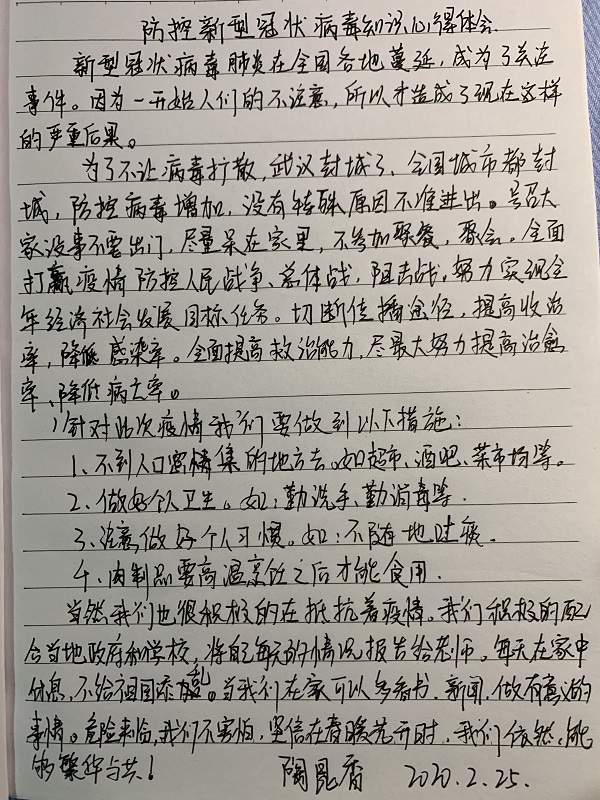 防控新型冠状病毒知识心得体会
新型冠状病毒肺炎在全国各地蔓延，成为了关注
事件。因为一开始人们的不注意，所以才造成了现在这样
的严重后果。
为了不让病毒扩散，武汉封城了、全国城市都封
城，防控病毒增加，没有特殊原因不准进出。号召大
家没事不要出门，尽量呆在家里，不参加聚餐，聚会。全面
打赢疫情防控人民战争、总体战，阻击战，努力实现全
年经济社会发展目标任务。切断传播途径，提高收治
率，降低感染率。全面提高救治能力，尽最大努力提高治愈
率、降低病亡率。
针对此次疫情我们要做到以下措施：
1、不到人口密集的地方去。如超市、酒吧、菜市场等。
2、做好个人卫生。如：勤洗手、勤消毒等.
3、注意做好个人习惯。如：不随地吐痰.
4、肉制品要高温烹饪之后才能食用.
当然我们也很积极的在抵抗着疫情。我们积极的配
合当地政府和学校，将自己每天的情况报告给老师。每天在家中
休息，不给祖国添乱。当我们在家可以多看书、新闻，做有意义的
事情。危险来临，我们不害怕，坚信在春暖花开时，我们依然能
够繁华与共！
陶昆香 2020.2.25.